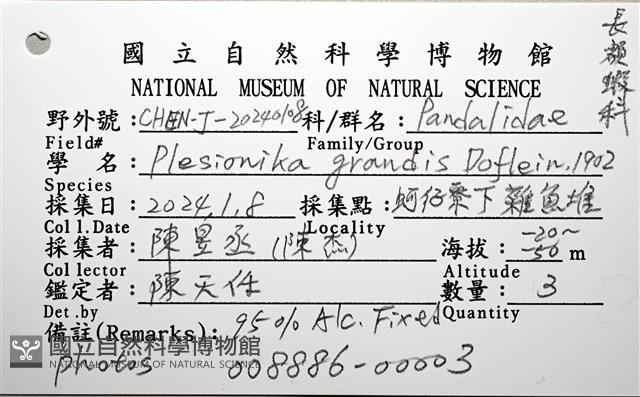 國立自然科學博物館
長額蝦科
NATIONAL MUSEUM OF NATURAL SCIENCE
野外號:CHEN-J-20240108 科/群名:Pandalidae
Field# Family/Group
學 名:Plesionika grandis Doflein, 1902
Species
採集日:2024.1.8 採集點:蚵仔寮下雜魚堆
Coll.Date Locality
採集者:陳昱丞(陳杰) 海拔:-20~-50 m
Collector Altitude
鑑定者:陳天任 數量:3
Det.by Quantity
備註(Remarks):95% Alc. Fixed
國立自然科學博物館
NATIONAL MUSEUM OF NATURAL SCIENCE
photos 008886-00003